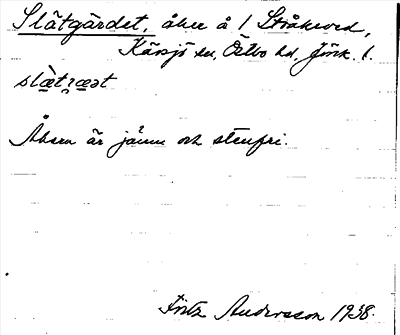 Slätgärdet, åker å 1 Stråkeved,
Kävsjö sn, Östbo hd, Jönk. l.
slæ̀tjæət
Åkern är jämn och stenfri.
Fritz Andersson 1938.